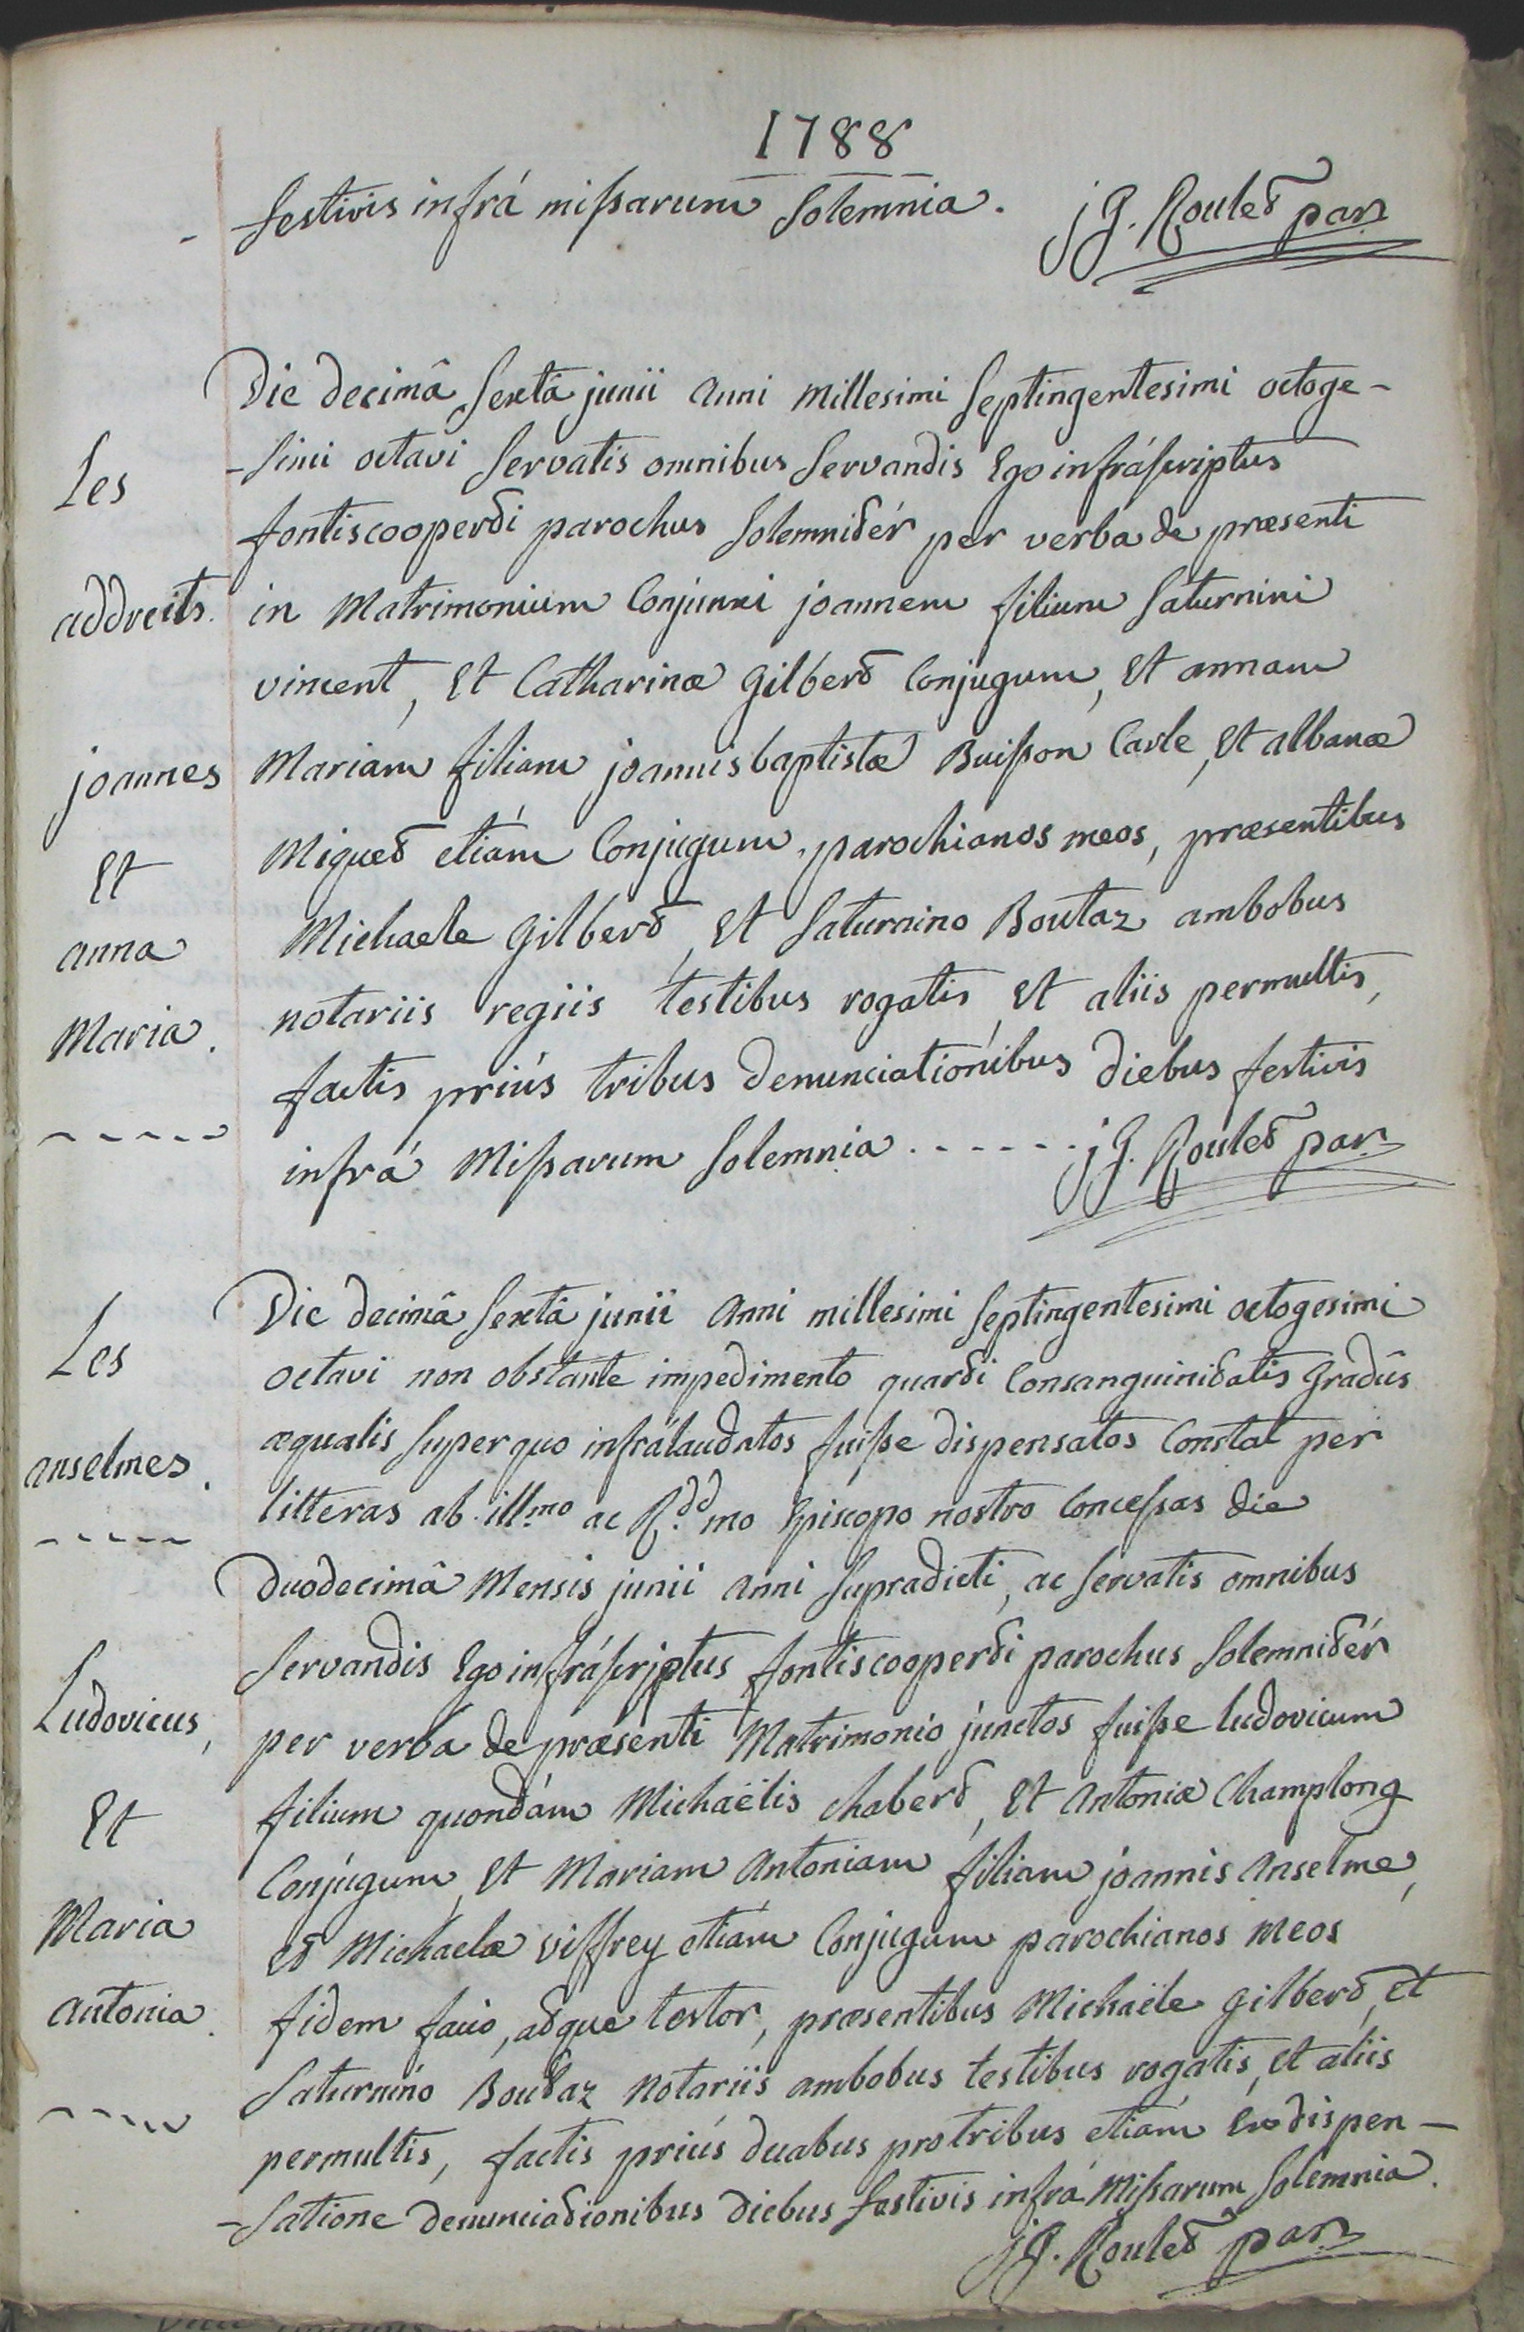 1788
festivis infrá missarum Solemnia. j G. Roulet par
Die decimâ Sextâ junii anni millesimi Septingentesimi octoge-
-simi octavi Servatis omnibus Servandis Ego infráscriptus
fontiscooperti parochus Solemnitér per verba de præsenti
in Matrimonium Conjunxi joannem filium Saturnini
vincent, Et Catharinæ gilbert Conjugum, Et annam
Mariam filiam joannis baptistæ Buisson Carle, Et albanæ
Miguet etiám Conjugum, parochianos meos, præsentibus
Michaele gilbert, Et Saturnino Boutaz ambobus
notariis regiis testibus rogatis, Et aliis permultis,
factis priús tribus denunciationibus diebus festivis
infrá Missarum Solemnia . - - - - - j G. Roulet par
Les
addreits.
joannes
Et
anna
Maria.
Die decimâ Sextâ junii anni millesimi Septingentesimi octogesimi
octavi non obstante impedimento quarti Consanguinitatis gradûs
æqualis Super quo infrálaudatos fuisse dispensatos Constat per
litteras ab ill.mo ac R.dd mo Episcopo nostro Concessas die
duodecimâ Mensis junii anni Supradicti, ac Servatis omnibus
Servandis Ego infráscriptus fontiscooperti parochus Solemnitér
per verba de præsenti Matrimonio junctos fuisse ludovicum
filium quondám Michaëlis chabert, Et Antoniæ Champlong
Conjugum, Et Mariam Antoniam filiam joannis Anselme,
et Michaelæ viffrey etiám Conjugum parochianos meos
fidem facio, atque testor, præsentibus Michaële gilbert, et
Saturnino Boutaz notariis ambobus testibus rogatis, Et aliis
permultis, factis priús duabus pro tribus etiám Ex dispen-
-Satione denunciationibus diebus festivis infrá Missarum Solemnia.
j G. Roulet par
Les
anselmes.
Ludovicus,
Et
Maria
antonia.